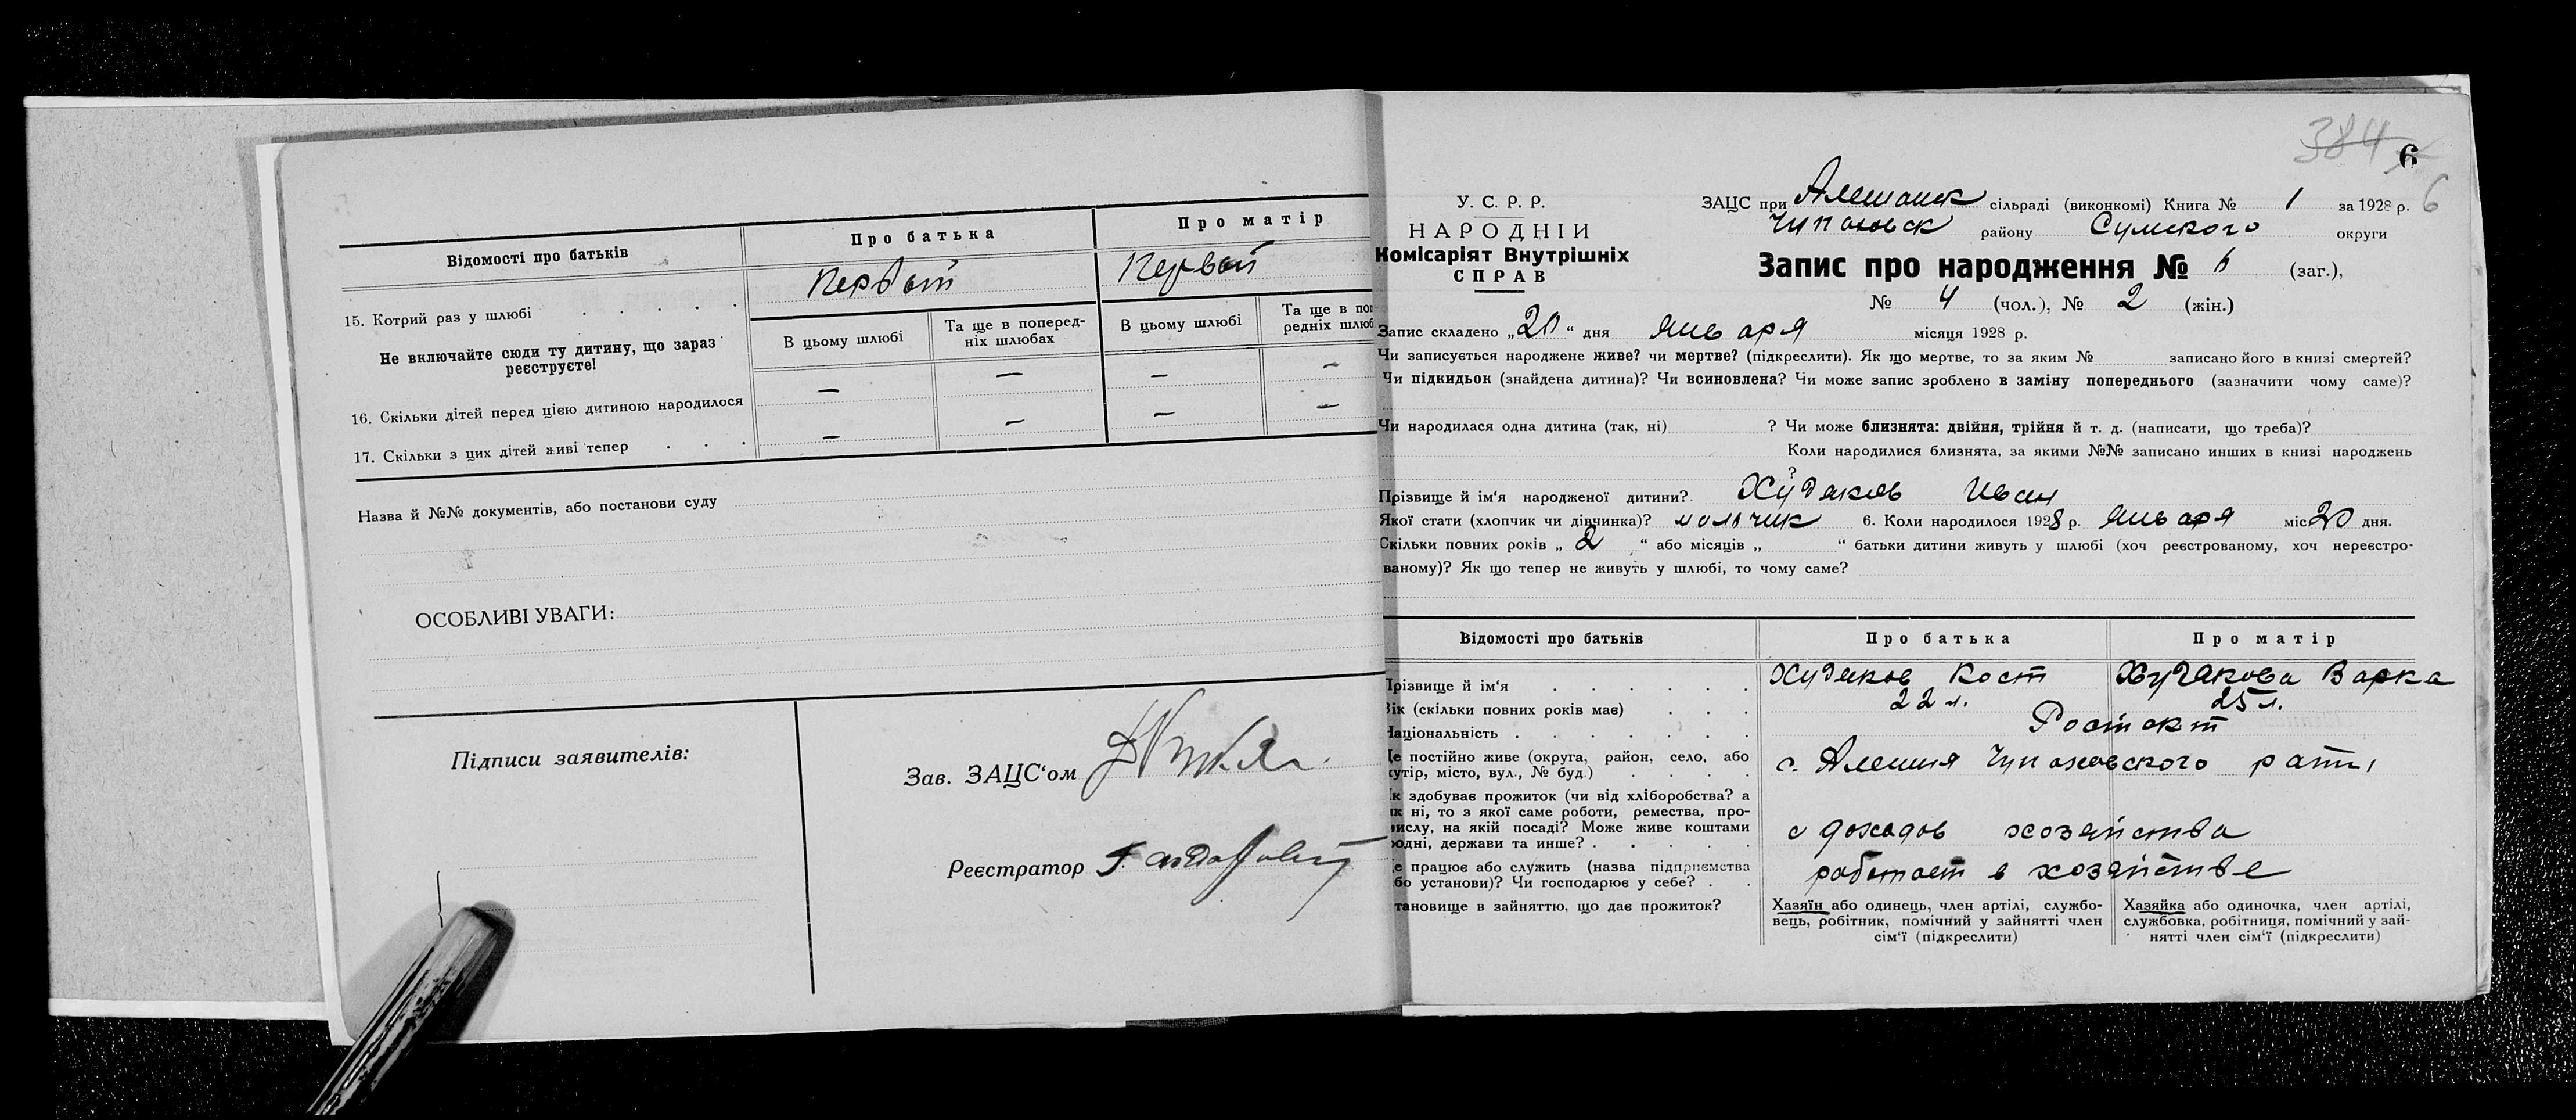 Відомості про батьків
Про батька
Про матір
15. Котрий раз у шлюбі . . . . .
Первый
Первый
Не включайте сюди ту дитину, що зараз
реєструєте!
В цьому шлюбі
Та ще в поперед-
ніх шлюбах
В цьому шлюбі
Та ще в по
редніх шлюб
16. Скільки дітей перед цією дитиною народилося
— — — —
17. Скільки з цих дітей живі тепер . . .
— — — —
Назва й №№ документів, або постанови суду
ОСОБЛИВІ УВАГИ:
Підписи заявителів:
Зав. ЗАЦС‘ом
Реєстратор
384
6
6
У. С. Р. Р.
НАРОДНІЙ
Комісаріят Внутрішніх
СПРАВ
ЗАЦС при Алешанск сільраді (виконкомі) Книга № 1 за 1928 р.
Чупаховск району Сумского округи
Запис про народження № 6 (заг.),
№ 4 (чол.), № 2 (жін.)
Запис складено „20“ дня января місяця 1928 р.
Чи записується народжене живе? чи мертве? (підкреслити). Як що мертве, то за яким № записано його в книзі смертей?
Чи підкидьок (знайдена дитина)? Чи всиновлена? Чи може запис зроблено в заміну попереднього (зазначити чому саме)?
Чи народилася одна дитина (так, ні) ? Чи може близнята: двійня, трійня й т. д. (написати, що треба)?
Коли народилися близнята, за якими №№ записано инших в книзі народжень
?
Прізвище й ім‘я народженої дитини? Худяков Иван
Якої стати (хлопчик чи дівчинка)? мальчик 6. Коли народилося 1928 р. января міс 20 дня.
Скільки повних років „ 2 “ або місяців „ “ батьки дитини живуть у шлюбі (хоч реєстрованому, хоч нереєстро-
ваному)? Як що тепер не живуть у шлюбі, то чому саме?
Відомості про батьків
Про батька
Про матір
Прізвище й ім‘я . . . . . .
Худяков Кост
Худякова Варка
Вік (скільки повних років має) . . .
22 л.
25 л.
Національність . . . . . . .
Де постійно живе (округа, район, село, або
хутір, місто, вул., № буд.) . . . .
с. Алешня Чупаховского
Як здобуває прожиток (чи від хліборобства? а
як ні, то з якої саме роботи, ремества, про-
мислу, на якій посаді? Може живе коштами
родні, держави та инше? . . . . .
с доходов хозяйства
Де працює або служить (назва підприємства
або установи)? Чи господарює у себе? . .
работает в хозяйстве
Становище в зайняттю, що дає прожиток?
Хазяїн або одинець, член артілі, службо-
вець, робітник, помічний у зайнятті член
сім‘ї (підкреслити)
Хазяйка або одиночка, член артілі,
службовка, робітниця, помічний у зай-
нятті член сім‘ї (підкреслити)